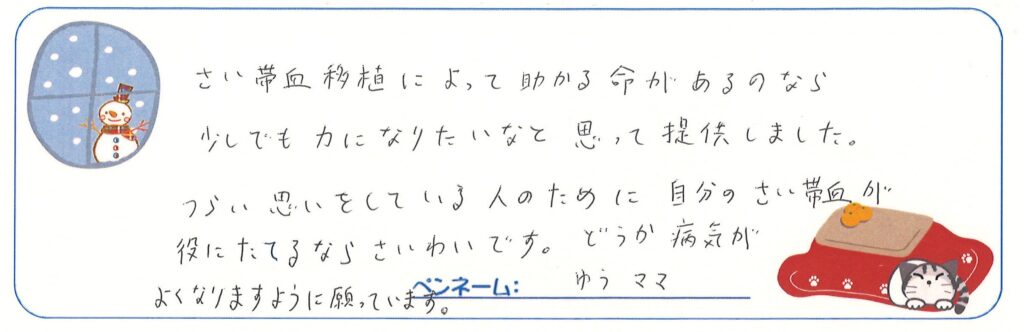 さい帯血移植によって助かる命があるのなら
少しでも力になりたいなと思って提供しました。
つらい思いをしている人のために自分のさい帯血が
役にたてるならさいわいです。どうか病気が
よくなりますように願っています。
ペンネーム: ゆうママ